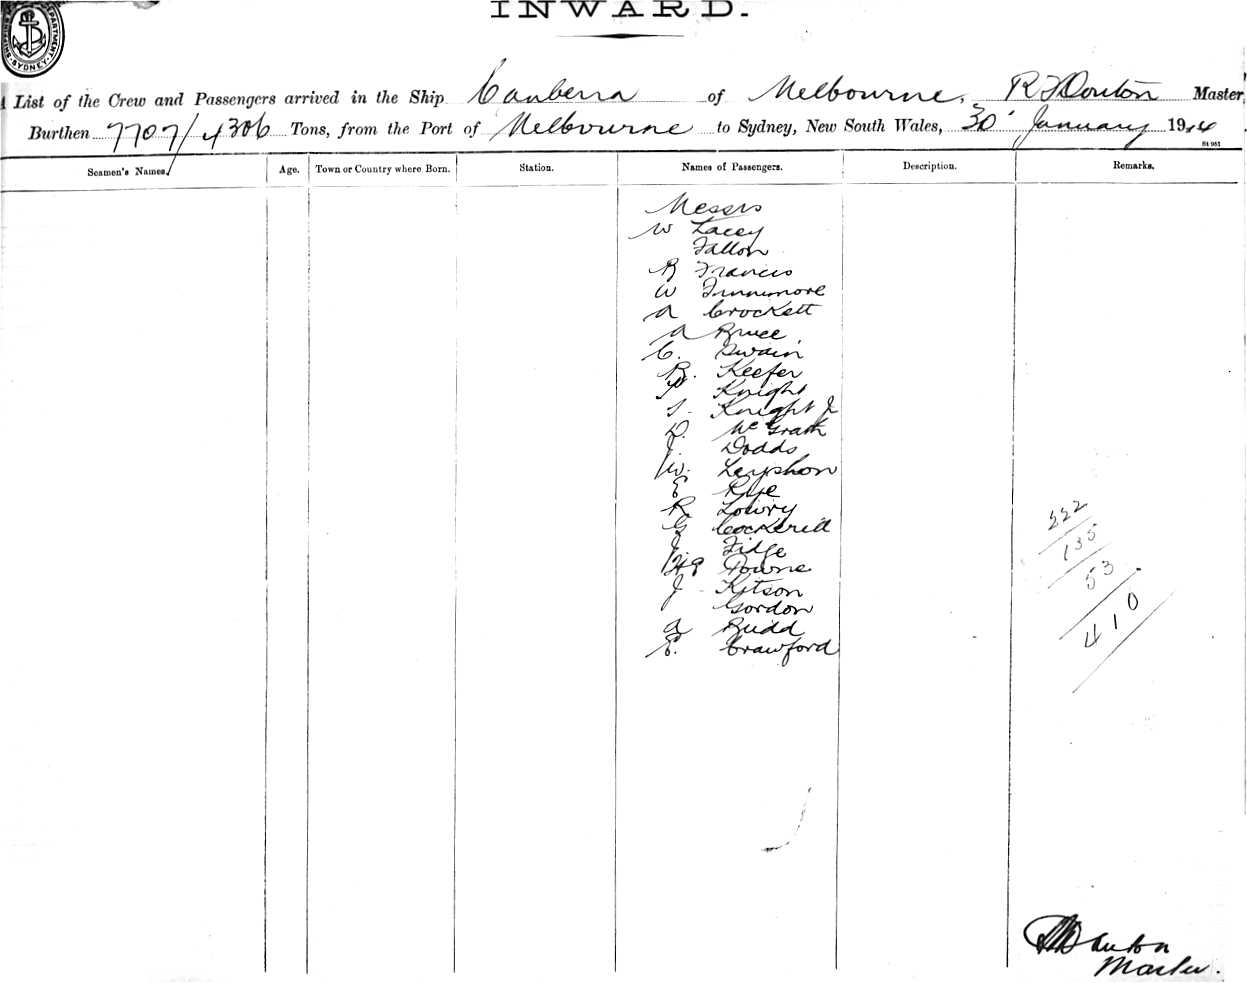 INWARD.
SHIPPING DEPARTMENT SYDNEY
List of the Crew and Passengers arrived in the Ship Canberra of Melbourne, R F Douton Master
Burthen 7707/4306 Tons, from the Port of Melbourne to Sydney, New South Wales, 30 January 1914
St 951
Seamen's Names. Age. Town or Country where Born. Station. Names of Passengers. Description. Remarks.
Messrs
W Lacey
Fallon
R Francis
W Finnimore
A Crockett
A Bruce
C. Swain
R. Keefer
Knight
S. Knight J
D. McGrath
J. Dodds
W. Leyshon
E Rye
R Lowry
G Cockerill
J Fidge
Towne
J Kitson
Gordon
A Budd
E. Crawford
222
135
53
410
Douton
Master.